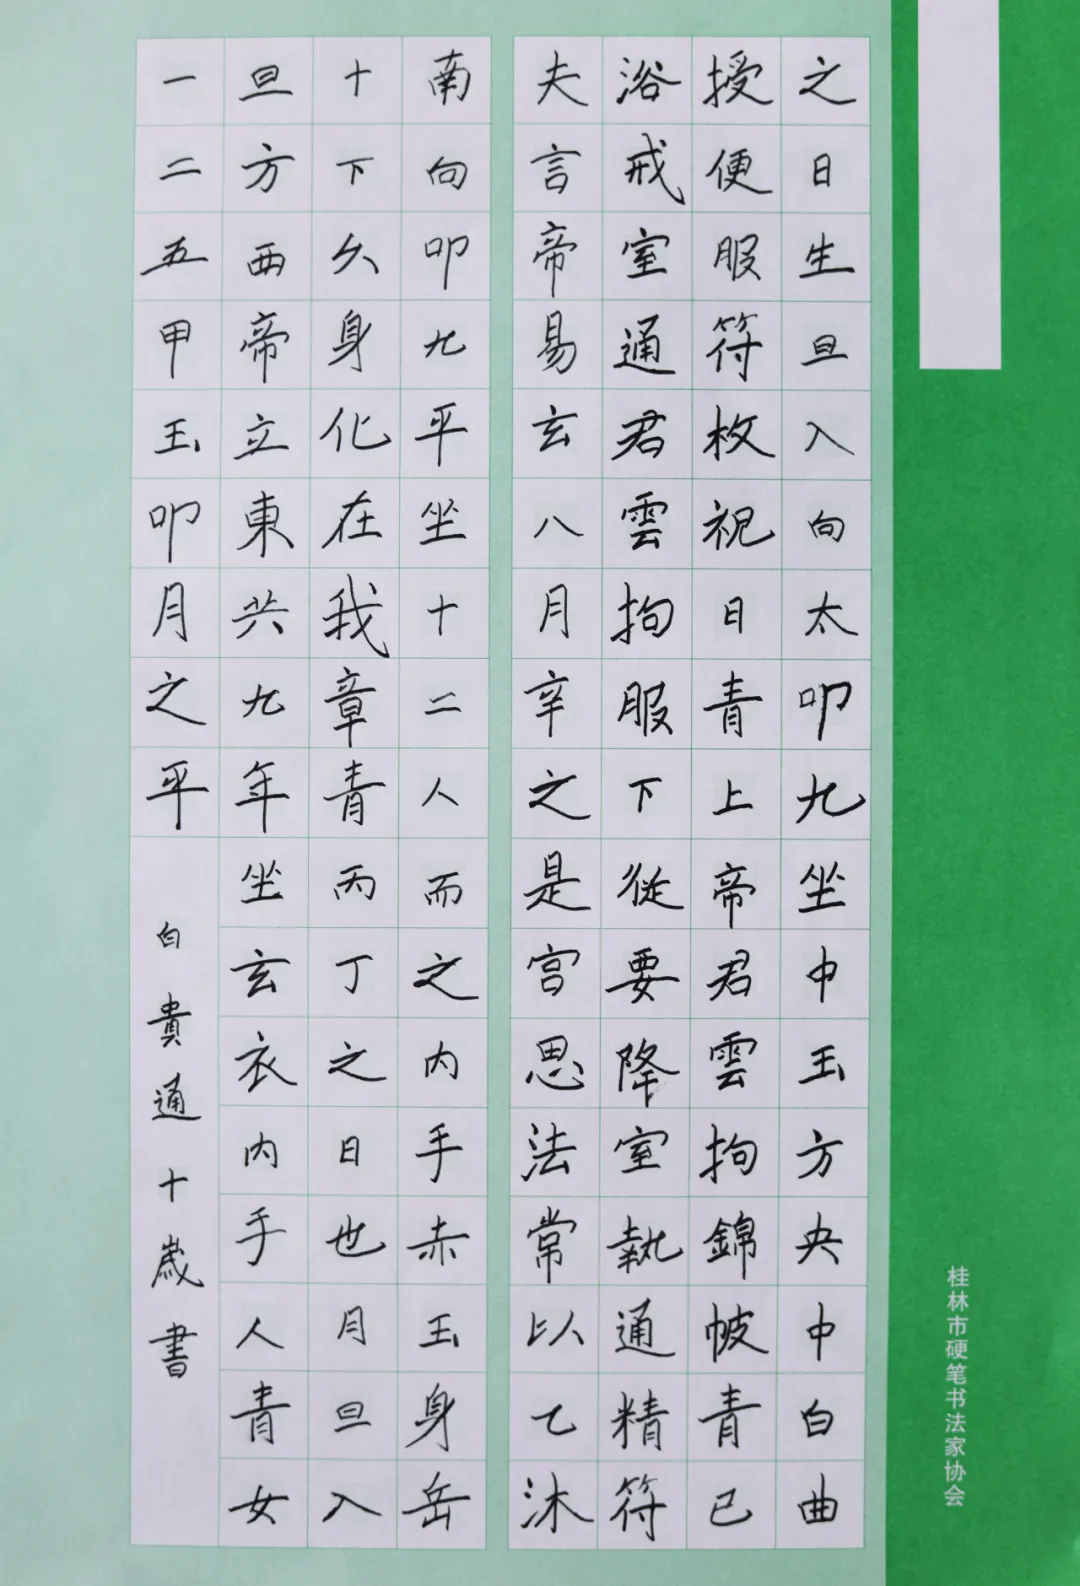 之日生旦入向太叩九坐中玉方央中白曲
授便服符枚祝日青上帝君雲拘錦帔青已
浴戒室通君雲拘服下從要降室執通精符
夫言帝易玄八月辛之是宫思法常以乙沐
南向叩九平坐十二人而之内手赤玉身岳
十下久身化在我章青丙丁之日也月旦入
旦方西帝立東共九年坐玄衣内手人青女
一二五甲玉叩月之平
白貴通十歲書
桂林市硬笔书法家协会